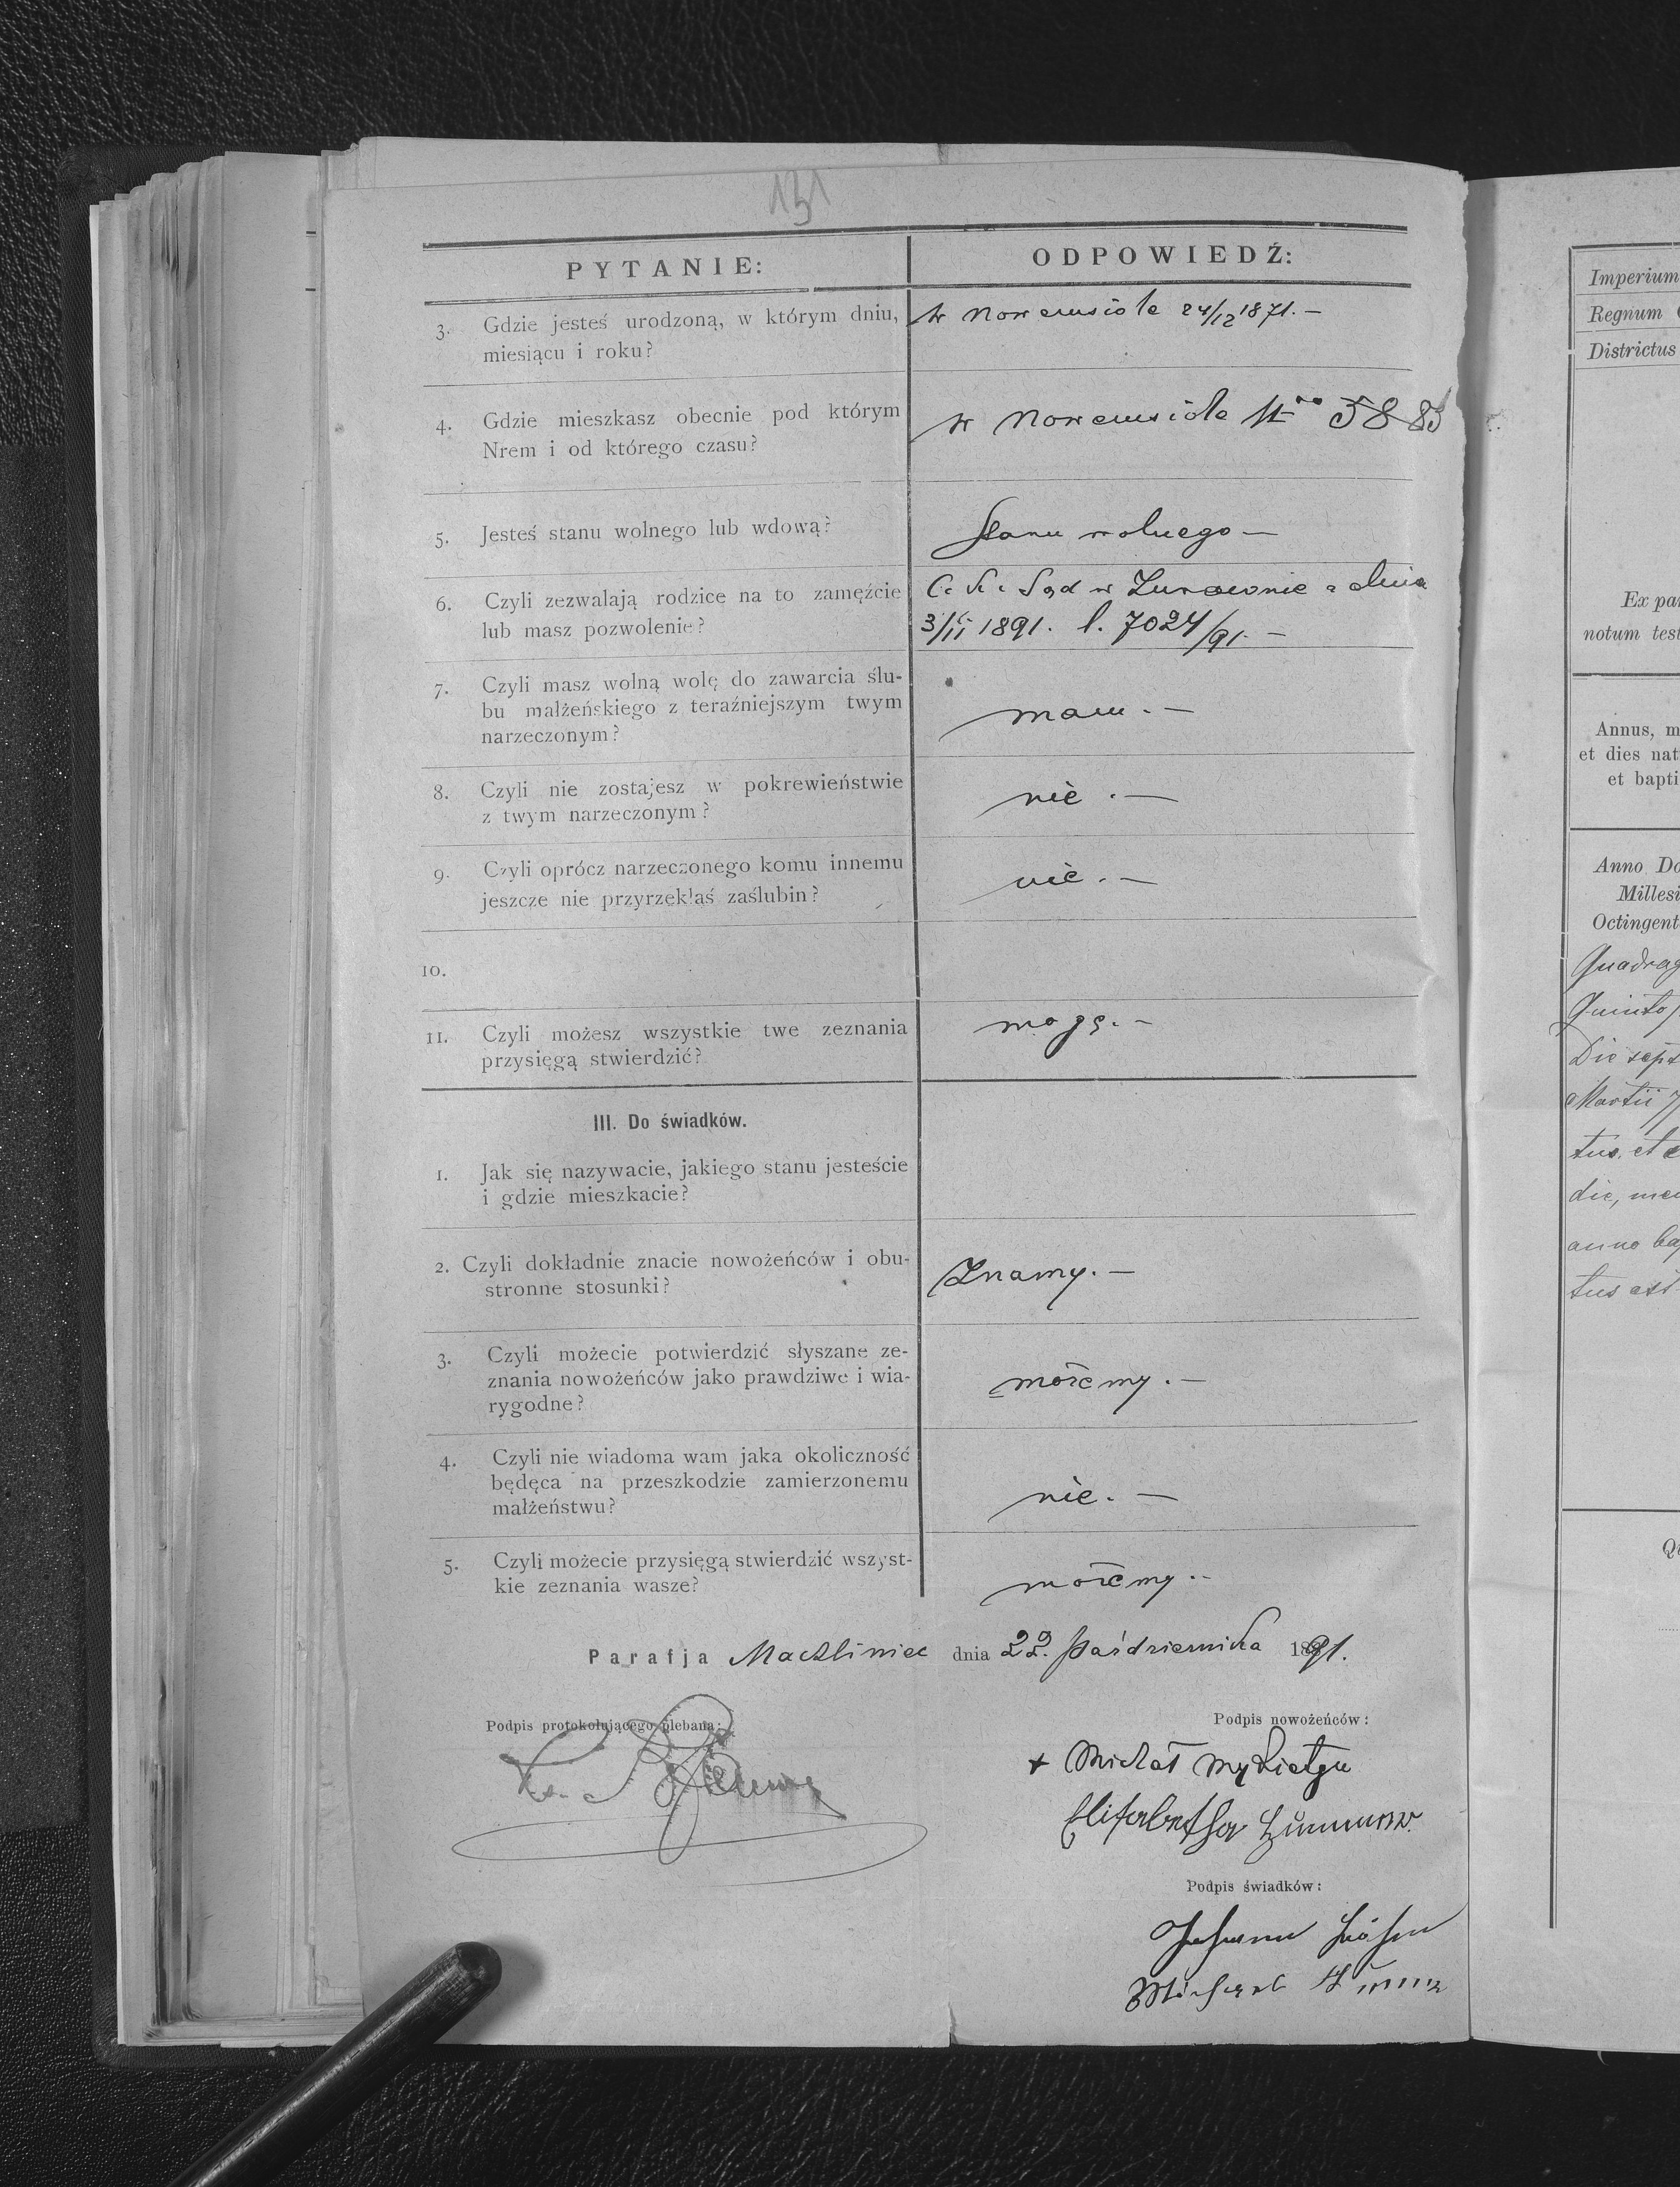 131
PYTANIE:
ODPOWIEDŹ:
3. Gdzie jesteś urodzoną, w którym dniu,
miesiącu i roku?
w Nowemsiole 24/12 1871. —
4. Gdzie mieszkasz obecnie pod którym
Nrem i od którego czasu?
w Nowemsiole N-ro 58 83
5. Jesteś stanu wolnego lub wdową?
Stanu wolnego —
6. Czyli zezwalają rodzice na to zamęźcie
lub masz pozwolenie?
C. k. Sąd w Żurawnie z dnia
3/11 1891. l. 7024/91. —
7. Czyli masz wolną wolę do zawarcia ślu-
bu małżeńskiego z teraźniejszym twym
narzeczonym?
mam. —
8. Czyli nie zostajesz w pokrewieństwie
z twym narzeczonym?
nie. —
9. Czyli oprócz narzeczonego komu innemu
jeszcze nie przyrzekłaś zaślubin?
nie. —
10.
11. Czyli możesz wszystkie twe zeznania
przysięgą stwierdzić?
mogę. —
III. Do świadków.
1. Jak się nazywacie, jakiego stanu jesteście
i gdzie mieszkacie?
2. Czyli dokładnie znacie nowożeńców i obu-
stronne stosunki?
Znamy. —
3. Czyli możecie potwierdzić słyszane ze-
znania nowożeńców jako prawdziwe i wia-
rygodne?
możemy. —
4. Czyli nie wiadoma wam jaka okoliczność
będęca na przeszkodzie zamierzonemu
małżeństwu?
nie. —
5. Czyli możecie przysięgą stwierdzić wszyst-
kie zeznania wasze?
możemy. —
Parafja Machliniec dnia 22. Października 1891.
Podpis protokołującego plebana:
Podpis nowożeńców:
+ Michał Mykietyn
Elisabetha
Podpis świadków:
Johann
Michael
Imperium
Regnum
Districtus
Ex par
notum test
Annus, m
et dies nat
et bapti
Anno Do
Millesi
Octingent
Quadrag
Quinto
Die sept
Martii
tus, et
die, men
anno bap
tus est